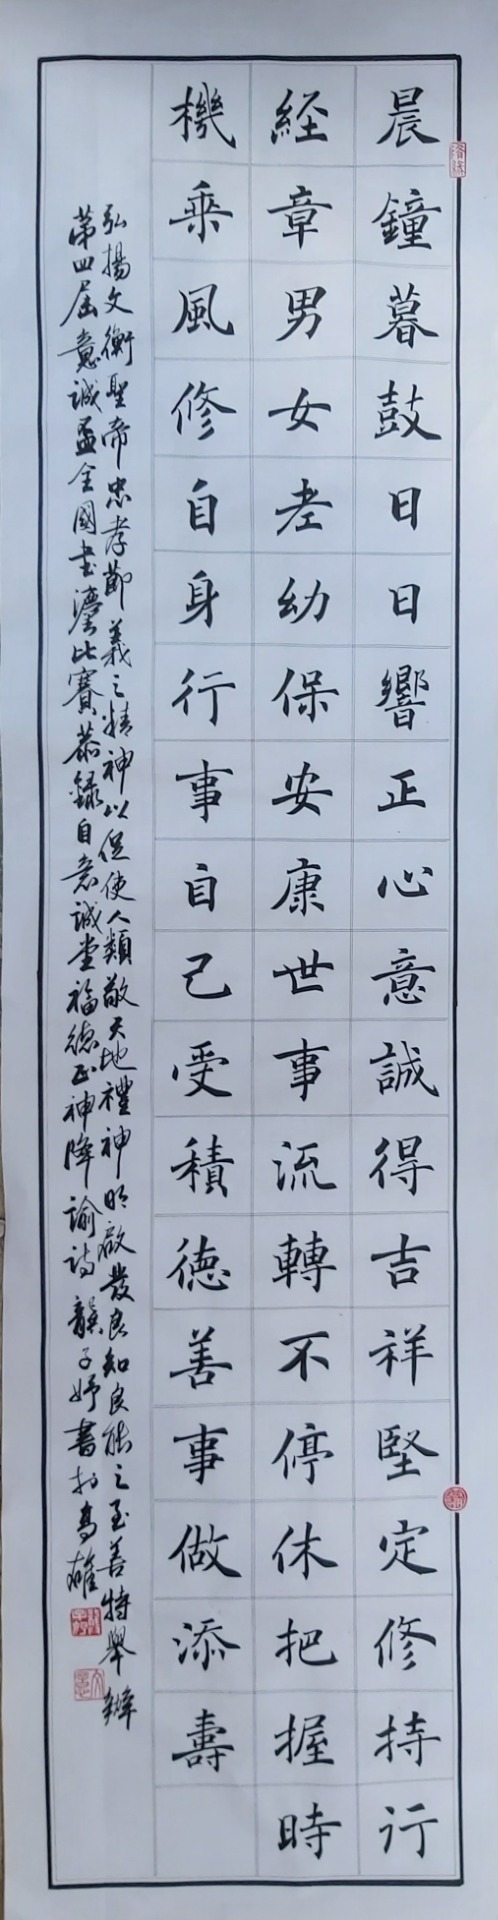 晨鐘暮鼓日日響正心意誠得吉祥堅定修持行
経章男女老幼保安康世事流轉不停休把握時
機乘風修自身行事自己受積德善事做添壽
弘揚文衡聖帝忠孝節義之精神以促使人類敬天地禮神明啟發良知良能之至善特舉辦
第四屆意誠盃全國書灋比賽恭錄自意誠堂福德正神降諭詩龔子妤書於高雄